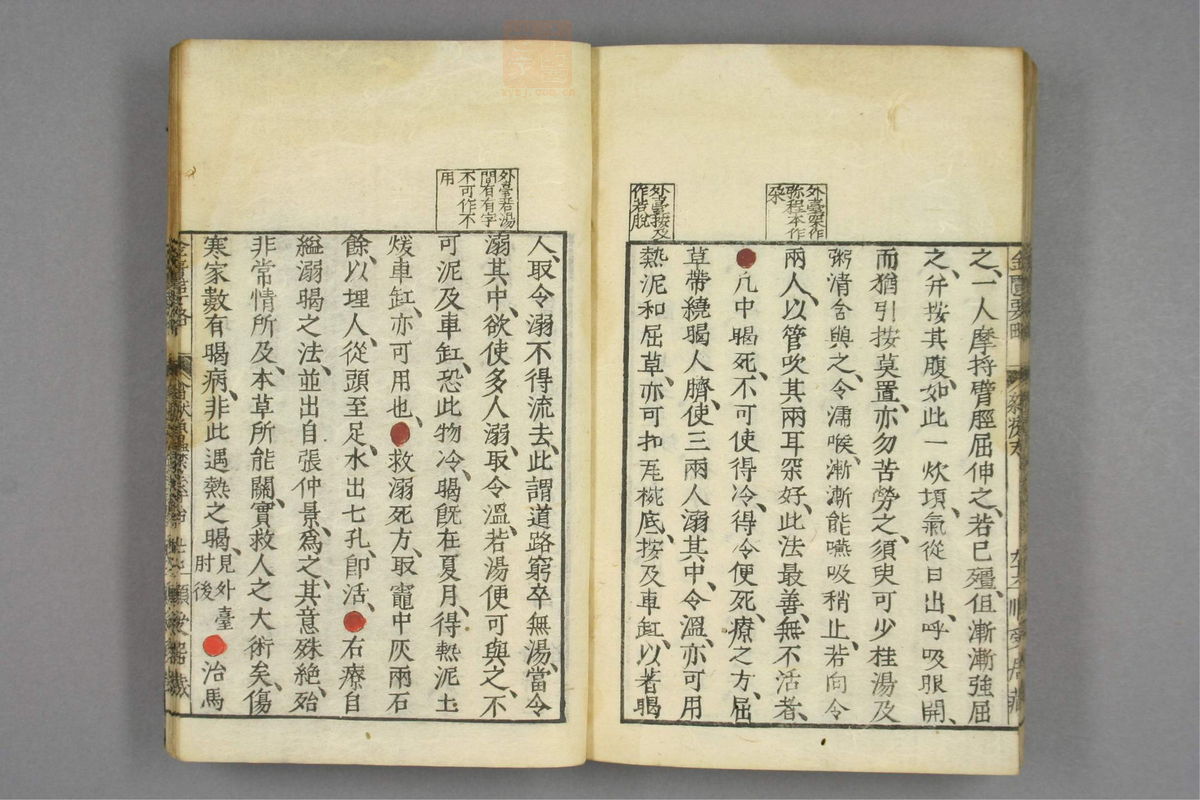 外臺罙作
聯程本作
朶
外臺按及
作若脫
金匱要略
之、一人摩捋臂脛屈伸之、若已殭、但漸漸強屈
之、并按其腹、如此一炊頃、氣從口出、呼吸眼開、
而猶引按莫置、亦勿苦勞之、須臾可少桂湯及
粥清含與之、令濡喉、漸漸能嚥、及稍止、若向令
兩人、以管吹其兩耳罙好、此法最善、無不活者、
凡中暍死、不可使得冷、得冷便死、療之方、屈
草帶繞暍人臍、使三兩人溺其中、令溫、亦可用
熱泥和屈草、亦可扣瓦椀底、按及車缸、以著暍
外臺若湯
間有有字
不可作不
用
人、取令溺不得流去、此謂道路窮卒無湯、當令
溺其中、欲使多人溺、取令溫、若湯便可與之、不
可泥及車缸、恐此物冷、暍既在夏月、得熱泥土
煖車缸、亦可用也、救溺死方、取竈中灰兩石
餘、以埋人、從頭至足、水出七孔、卽活、右療自
縊溺暍之法、並出自張仲景、爲之、其意殊絶、殆
非常情所及、本草所能關、實救人之大術矣、傷
寒家數有暍病、非此遇熱之暍、見外臺肘後 治馬